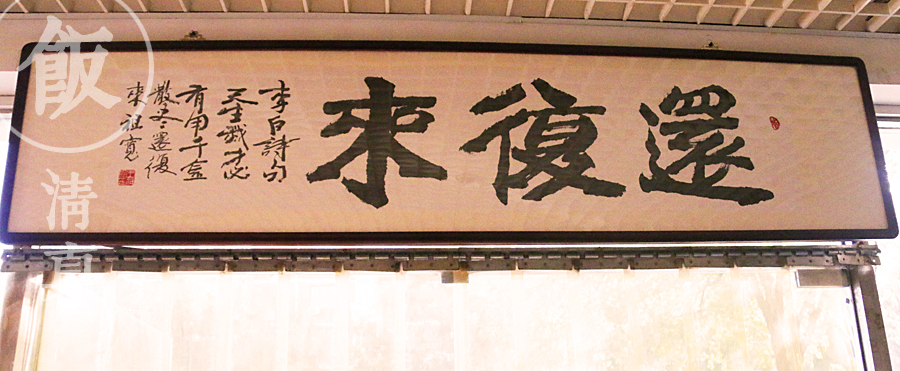 還復來
李白詩句
天生我才必
有用千金
散尽還復
來祖寬
飯
清真